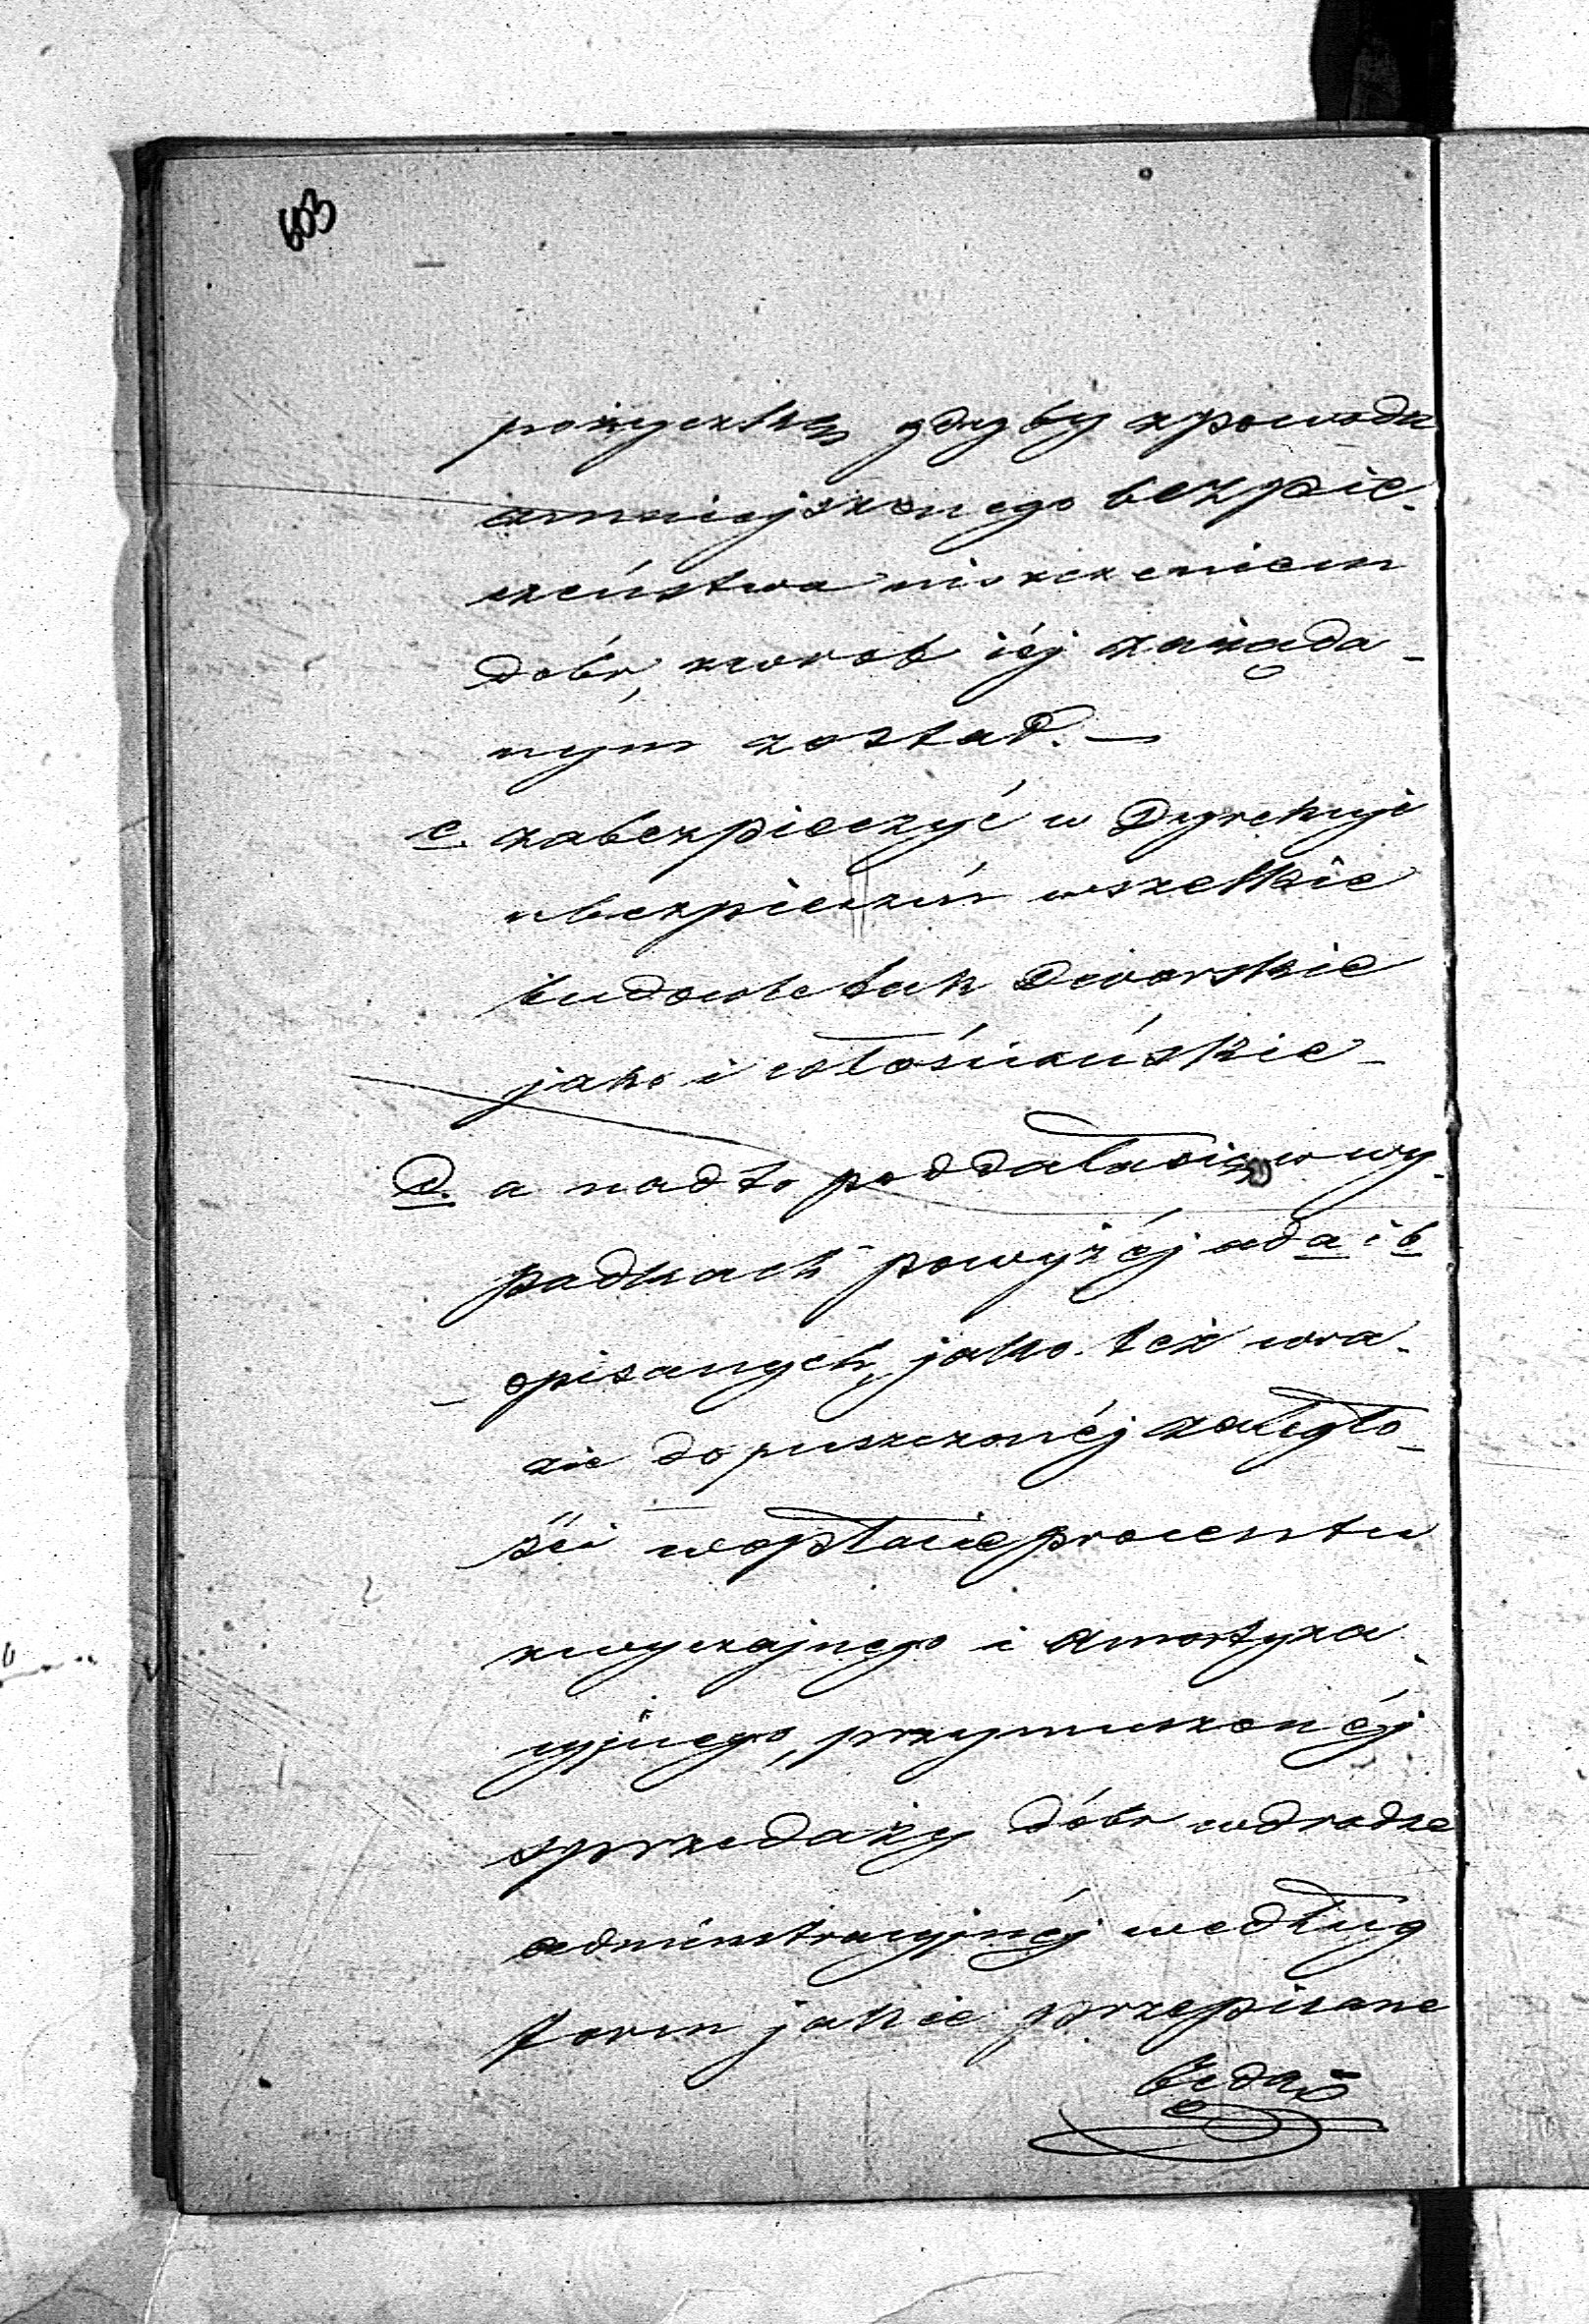 603
pożyczkę gdyby z powodu
zmniejszonego bezpie-
czeństwa niszczeniem
dobr, zwrot iéj zażąda-
nym został. —
c. zabezpieczyć w Dyrekcyi
ubezpieczeń wszelkie
budowle tak Dworskie
jako i włościańskie -
d. a nadto poddała się w wy-
padkach powyżéj ad a i b
opisanych, jako też w ra-
zie dopuszczonéj zaległo-
ści w opłacie procentu
zwyczajnego i amortyza-
cyjnego, przymuszonéj
sprzedaży dóbr w drodze
administracyjnéj według
form jakie przepisane
będą